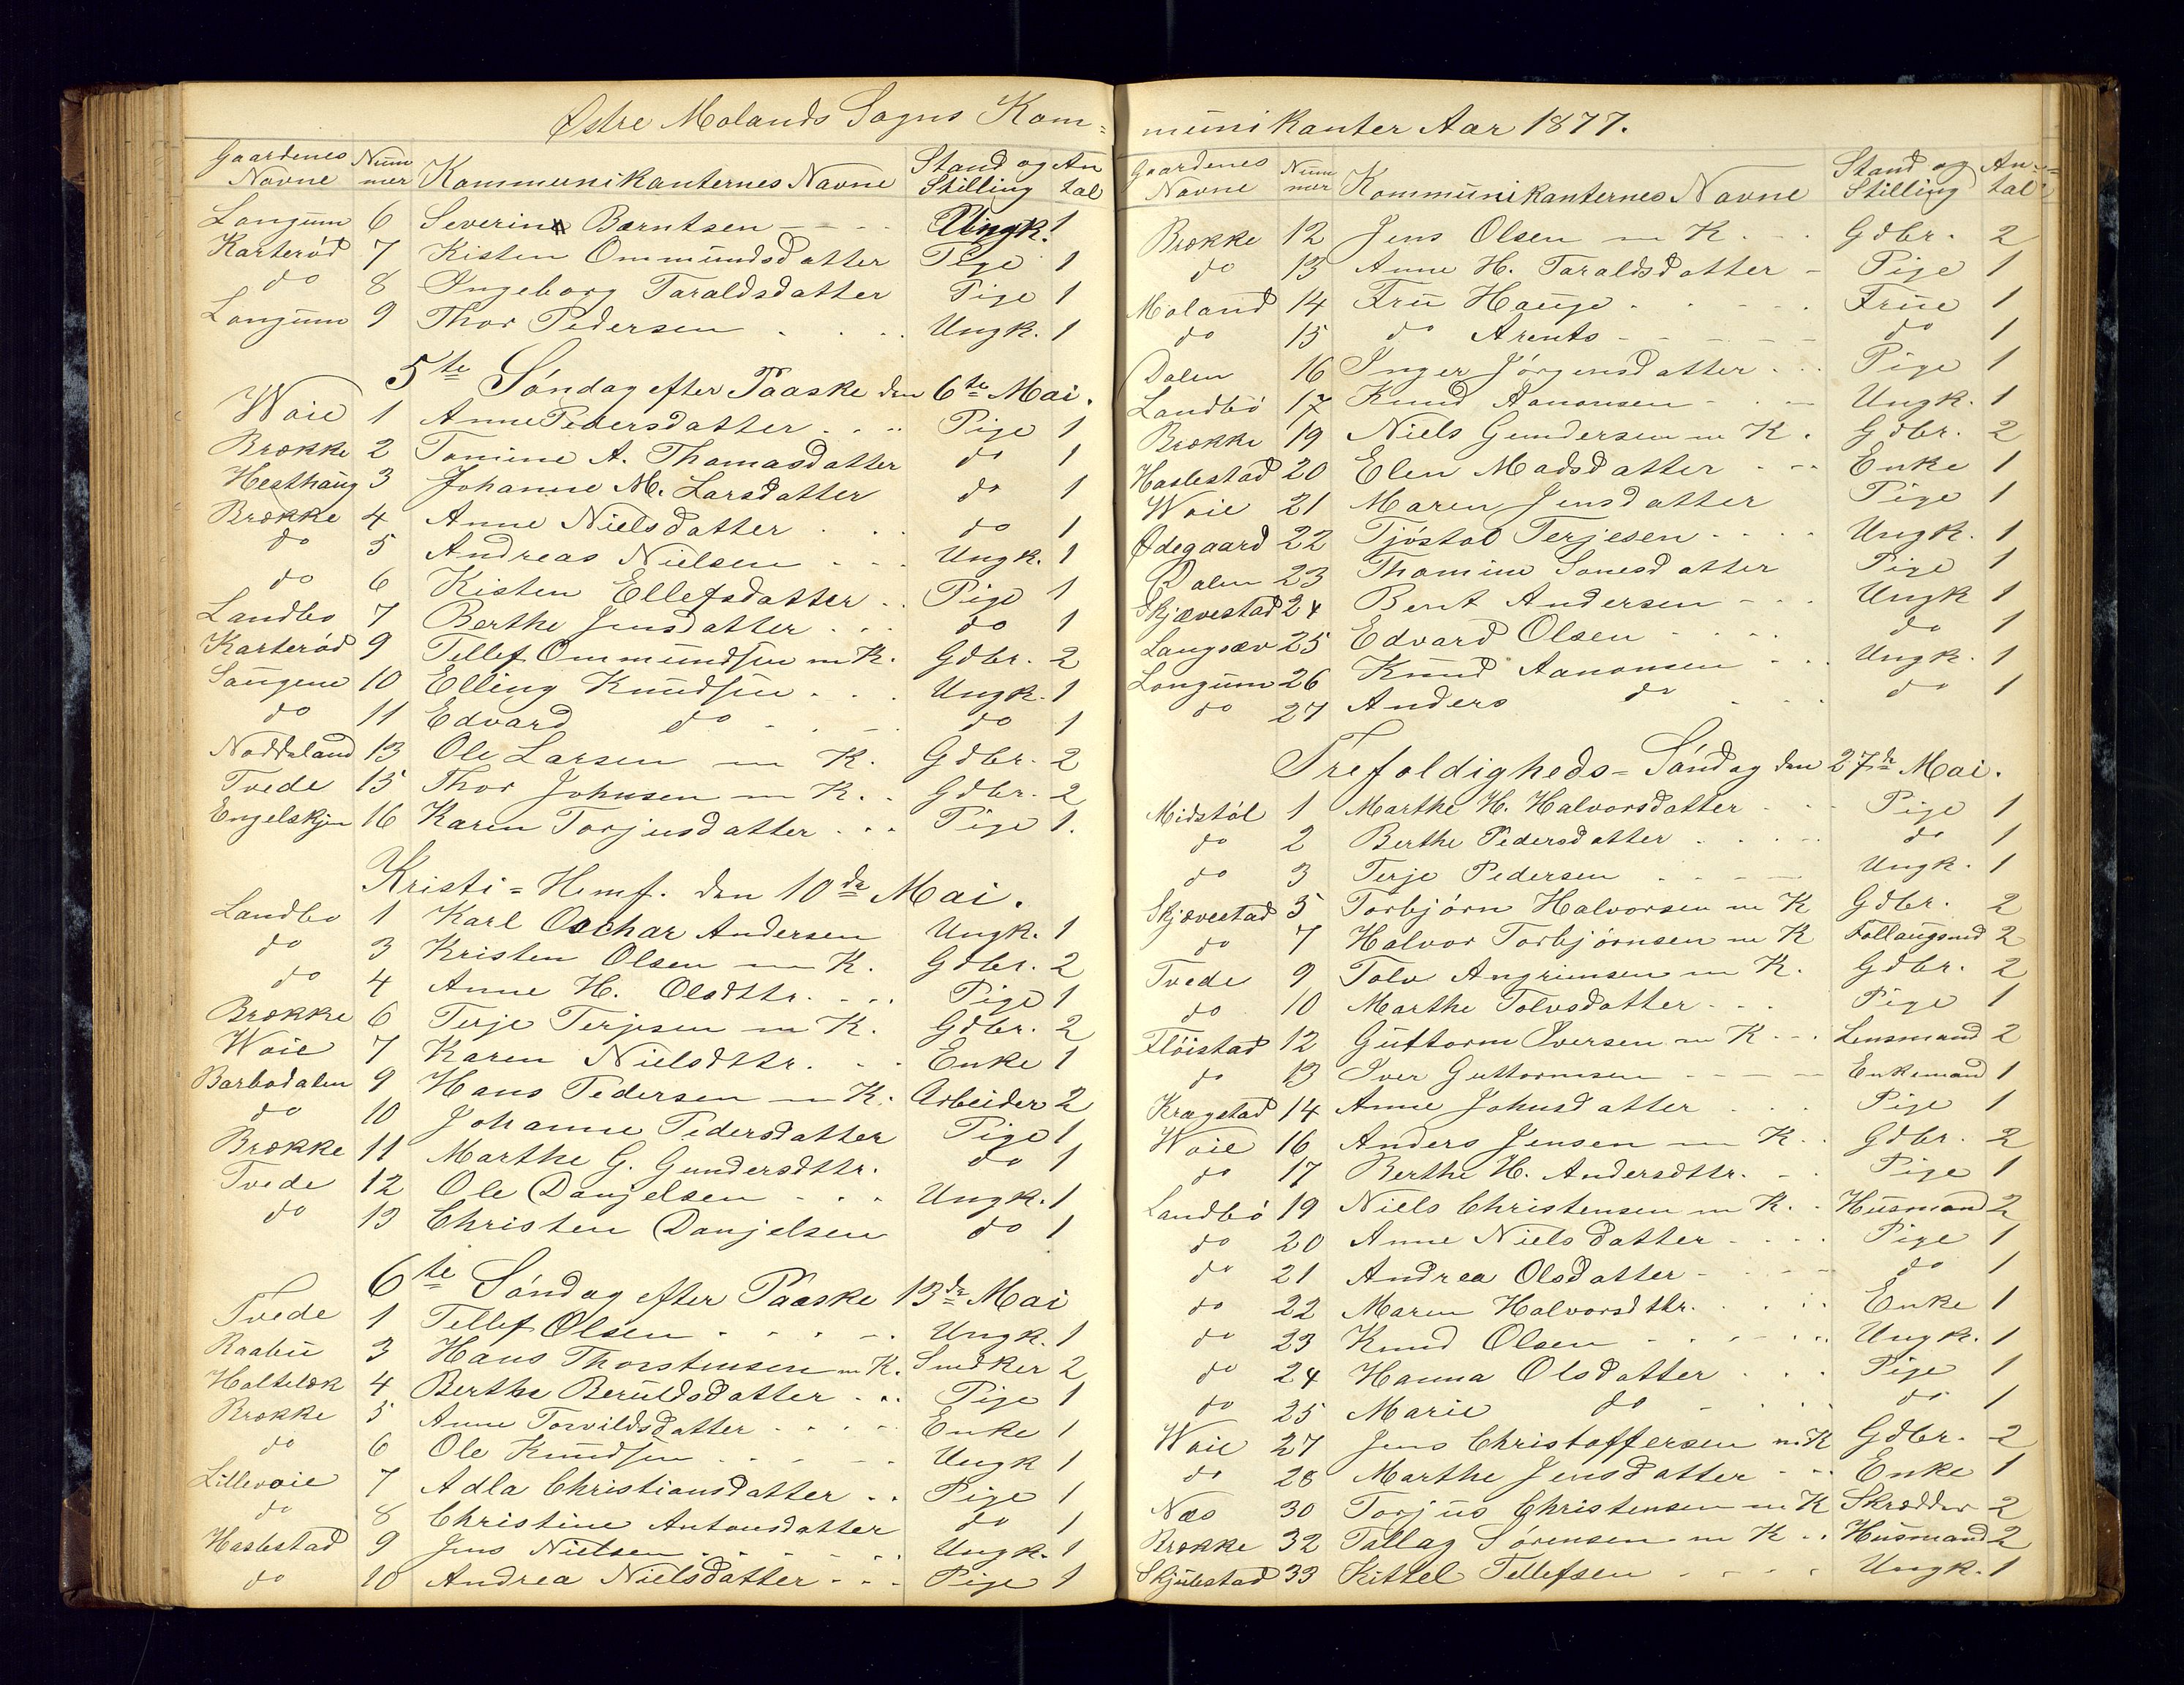 Østre Molands Sogns Kom=
Gaardenes Navne Num mer Kommunikanternes Navne Stand og Stilling An tal
Longum 6 Severin Berntsen - - - Ungk. 1
Karterød 7 Kisten Ommundsdatter Pige 1
do 8 Ingeborg Taraldsdatter Pige 1
Longum 9 Thor Pedersen . . . Ungk. 1
5te Søndag efter Paaske den 6te Mai.
Woie 1 Anne Pedersdatter . . . Pige 1
Brække 2 Tomine A. Thomasdatter do 1
Hesthaug 3 Johanne M. Larsdatter do 1
Brække 4 Anne Nielsdatter . . . do 1
do 5 Andreas Nielsen . . . Ungk. 1
do 6 Kisten Ellefsdatter . . Pige 1
Landbo 7 Berthe Jensdatter . . . do 1
Karterød 9 Tellef Ommundsen m K. Gdbr. 2
Saugene 10 Elling Knudsen . . . Ungk. 1
do 11 Edvard do - . - do 1
Noddeland 13 Ole Larsen m K. Gdbr. 2
Tvede 15 Thor Johnsen m K. . Gdbr. 2
Engelskjen 16 Karen Torjusdatter . . . Pige 1.
Kristi = Hemf. den 10de Mai.
Landbo 1 Karl Oschar Andersen Ungk. 1
do 3 Kristen Olsen m K. Gdbr. 2
do 4 Anne H. Olsdttr. - . . Pige 1
Brække 6 Terje Terjesen m K. Gdbr. 2
Woie 7 Karen Nielsdttr. . . Enke 1
Barbodalen 9 Hans Pedersen m K. Arbeider 2
do 10 Johanne Pedersdatter Pige 1
Brække 11 Marthe G. Gundersdttr. do 1
Tvede 12 Ole Danjelsen - . . Ungk. 1
do 13 Christen Danjelsen do 1
6te Søndag efter Paaske 13de Mai
Tvede 1 Tellef Olsen . . . . Ungk. 1
Raabu 3 Hans Thorstensen m K. Snedker 2
Holtelæk 4 Berthe Beruldsdatter . . Pige 1
Brække 5 Anne Torvildsdatter . . . Enke 1
do 6 Ole Knudsen . . . . Ungk 1
Lillevoie 7 Adla Christiansdatter . . Pige 1
do 8 Christine Antonsdatter do 1
Haslestad 9 Jens Nielsen . . . . Ungk. 1
do 10 Andrea Nielsdatter - - - Pige 1
munikanter Aar 1877.
Gaardenes Navne Num mer Kommunikanternes Navne Stand og Stilling An- tal
Brække 12 Jens Olsen m K . . . Gdbr. 2
do 13 Anne H. Taraldsdatter - Pige 1
Moland 14 Fru Hauge . . - . Frue 1
do 15 do Arents - - - - do 1
Dalen 16 Inger Jørgensdatter . . . Pige 1
Landbø 17 Knud Aanonsen - . - Ungk. 1
Brække 19 Niels Gundersen m K. Gdbr. 2
Haslestad 20 Elen Madsdatter . - Enke 1
Woie 21 Maren Jensdatter Pige 1
Ødegaard 22 Tjøstol Terjesen . . . . Ungk. 1
Dalen 23 Thomine Sonesdatter Pige 1
Skjævestad 24 Bent Andersen - . . Ungk 1
Langsæv 25 Edvard Olsen . . . . do 1
Longum 26 Knud Aanonsen . . . Ungk. 1
do 27 Anders do . . . do 1
Trefoldigheds = Søndag den 27de Mai.
Midstøl 1 Marthe H. Halvorsdatter . - Pige 1
do 2 Berthe Pedersdatter . . . do 1
do 3 Terje Pedersen . . - - Ungk. 1
Skjævestad 5 Torbjørn Halvorsen m K Gdbr. 2
do 7 Halvor Torbjørnsen m K Follaugsmd 2
Tvede 9 Tolv Angrimsen m K. Gdbr. 2
do 10 Marthe Tolvsdatter . . . Pige 1
Fløistad 12 Guttorm Iversen m K - . . Lensmand 2
do 13 Iver Guttormsen - - - - Enkemand 1
Kragstad 14 Anne Johnsdatter . . . Pige 1
Woie 16 Anders Jensen m K. . Gdbr. 2
do 17 Berthe H. Andersdttr. - . Pige 1
Landbø 19 Niels Christensen m K. . Husmand 2
do 20 Anne Nielsdatter - . . . Pige 1
do 21 Andrea Olsdatter - - . - do 1
do 22 Maren Halvorsdttr. . . . Enke 1
do 23 Knud Olsen - . . . . . Ungk. 1
do 24 Hanna Olsdatter . . . Pige 1
do 25 Marie do - . . do 1
Woie 27 Jens Christoffersen m K Gdbr. 2
do 28 Marthe Jensdatter - - Enke 1
Næs 30 Torjus Christensen m K Skrædder 2
Brække 32 Tallag Sørensen m K . . Husmand 2
Skjulestad 33 Kittel Tellefsen - - - . Ungk. 1